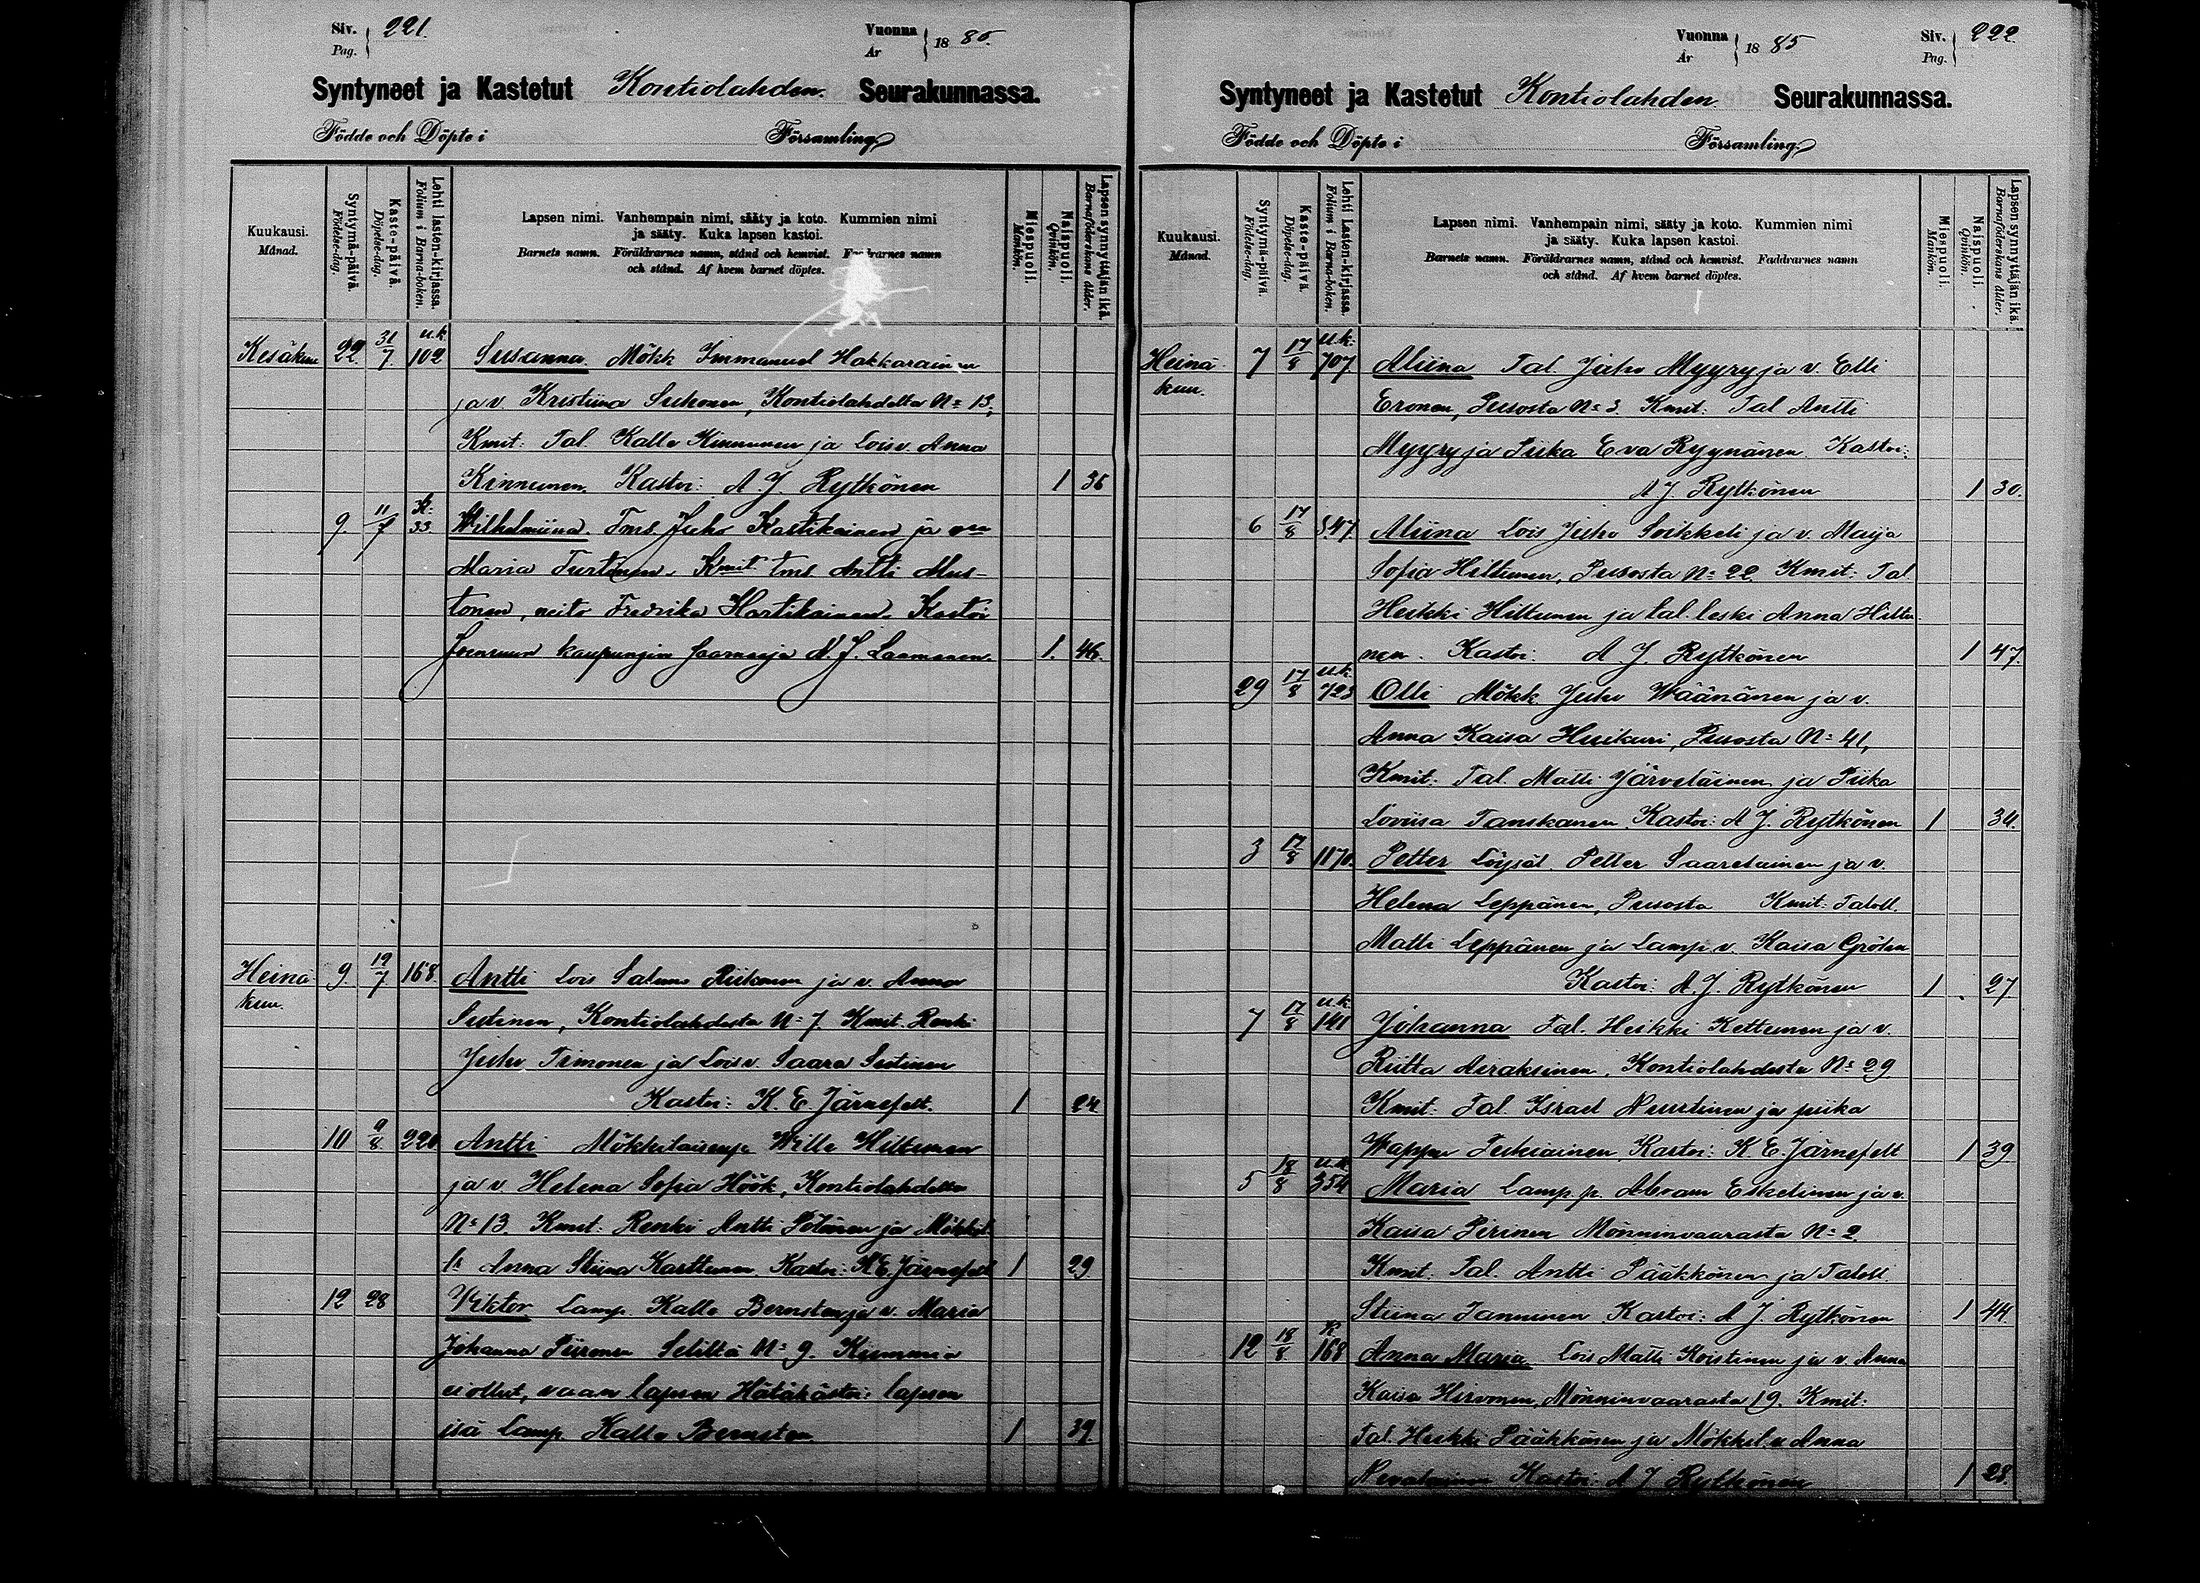 Siv. 221.
Pag.
Vuonna 1885.
År
Syntyneet ja Kastetut Kontiolahden Seurakunnassa.
Födde och Döpte i Församling
Kuukausi.
Månad.
Syntymä-päivä.
Födelse-dag.
Kaste-päivä.
Döpelse-dag.
Lehti lasten-kirjassa.
Folium i Barna-boken.
Lapsen nimi. Vanhempain nimi, sääty ja koto. Kummien nimi
ja sääty. Kuka lapsen kastoi.
Barnets namn. Föräldrarnes namn, stånd och hemvist. Faddrarnes namn
och stånd. Af hvem barnet döptes.
Miespuoli.
Mankön.
Naispuoli.
Qvinkön.
Lapsen synnyttäjän ikä.
Barnaföderskans ålder.
Kesäkuu 22. 31/7. u.k. 102 Susanna. Mökk Immanuel Hakkarainen
ja v. Kristiina Suhonen, Kontiolahdelta No 13,
Kmit: Tal. Kalle Kinnunen ja Lois v. Anna
Kinnunen. Kastoi: A. J. Rytkönen 1 36
9. 11/7 K: 33. Wilhelmiina. Tml. Juho Kartikainen ja
Maria Turtinen. Kmit Tml Antti Mus-
tonen, neito Fredrika Hartikainen. Kastoi
Joensuun kaupungin saarnaaja A. J. Laamanen. 1. 46.
Heinä kuu. 9. 19/7 168 Antti Lois Salomo Piikonen ja v. Anna
Sutinen, Kontiolahdesta No 7. Kmit. Renki
Juho Timonen ja Lois v. Saara Sutinen
Kastoi: K. E. Järnefelt. 1 24
10 9/8. 220 Antti Mökkiläisenp. Wille Hiltunen
ja v. Helena Sofia Höök, Kontiolahdelta
No 13. Kmit: Renki Antti Pölönen ja Mökkil
Anna Stiina Karttunen. Kastoi: K E. Järnefelt 1 29
12 28 Viktor Lamp. Kalle Bernsten ja v. Maria
Johanna Piironen Seliltä No 9. Kummia
ei ollut, vaan lapsen Hätäkastoi: lapsen
isä Lamp. Kalle Bernsten 1 39
Vuonna 1885
År
Siv. 222.
Pag.
Syntyneet ja Kastetut Kontiolahden Seurakunnassa.
Födde och Döpte i Församling
Kuukausi.
Månad.
Syntymä-päivä.
Födelse-dag.
Kaste-päivä.
Döpelse-dag.
Lehti Lasten-kirjassa.
Folium i Barna-boken.
Lapsen nimi. Vanhempain nimi, sääty ja koto. Kummien nimi
ja sääty. Kuka lapsen kastoi.
Barnets namn. Föräldrarnes namn, stånd och hemvist. Faddrarnes namn
och stånd. Af hvem barnet döptes.
Miespuoli.
Mankön.
Naispuoli.
Qvinkön.
Lapsen synnyttäjän ikä.
Barnaföderskans ålder.
Heinä kuu. 7 17/8 u.k. 707 Aliina Tal. Juho Myyry ja v. Elli
Eronen, Pusosta No 3. Kmit: Tal Antti
Myyry ja Piika Eva Ryynänen. Kastoi:
A J. Rytkönen 1 30.
6 17/8 847 Aliina Lois Juho Soikkeli ja v. Maija
Sofia Hiltunen, Pusosta No 22. Kmit: Tal
Heikki Hiltunen ja tal. leski Anna Hiltu
nen. Kastoi: A J. Rytkönen 1 47.
29 17/8 u.k. 723 Olli Mökk Juho Wäänänen ja v.
Anna Kaisa Huikuri, Pusosta No 41,
Kmit: Tal. Matti Järveläinen ja Piika
Loviisa Tanskanen. Kastoi: A J. Rytkönen 1 34.
3 17/8 1170. Petter Löysäl. Petter Saarelainen ja v.
Helena Leppänen, Pusosta Kmit: Taloll.
Matti Leppänen ja Lamp. v. Kaisa Gröhn
Kastoi: A. J. Rytkönen 1 27
7 17/8 u.k. 141 Johanna Tal. Heikki Kettunen ja v.
Riitta Airaksinen, Kontiolahdesta No 29
Kmit: Tal. Israel Nuutinen ja piika
Wappu Puhiainen. Kastoi: K. E. Järnefelt 1 39
5 18/8 u.k. 354 Maria Lamp p. Abram Eskelinen ja v.
Kaisa Pirinen Mönninvaarasta No 2.
Kmit: Tal. Antti Pääkkönen ja Taloll
Stiina Tanninen Kastoi: A J. Rytkönen 1 44
12 18/8 R 168 Anna Maria Lois Matti Koistinen ja v. Anna
Kaisa Hirvonen, Mönninvaarasta 19. Kmit:
Tal. Heikki Pääkkönen ja Mökkil. v Anna
Nevalainen Kastoi A J Rytkönen 1 28